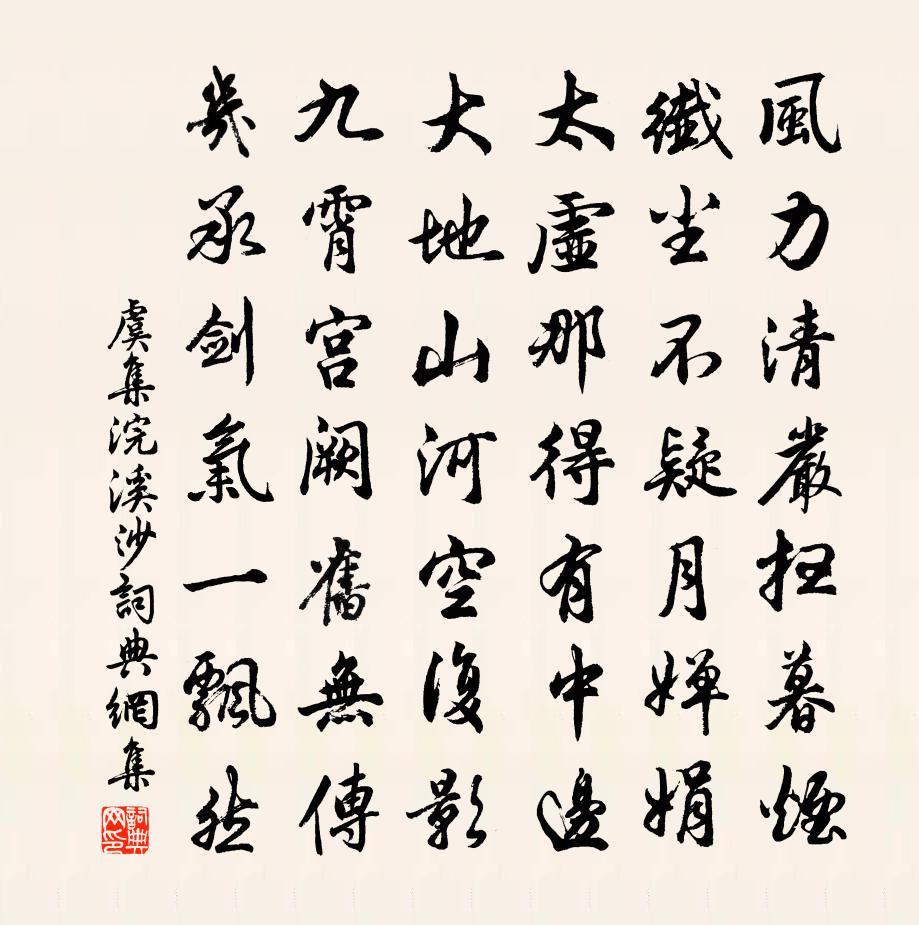 風力清嚴扫暮煙
纖尘不疑月嬋娟
太虛那得有中邊
大地山河空復影
九霄宫闕舊無傳
幾承剑氣一飄然
虞集浣溪沙詞典網集
詞典
网印